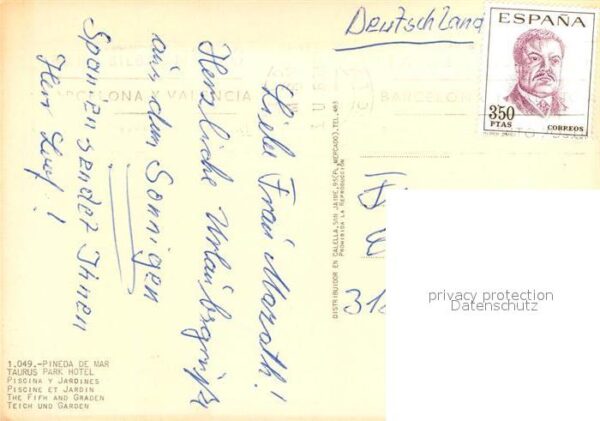 Deutschland
ESPAÑA
350
PTAS
CORREOS
BARCELONA Y VALENCIA
BARCELON
Liebe Frau
Herzliche Urlaubsgrüße
aus dem Sonnigen
Spanien sendet Ihnen
Herr !
DISTRIBUIDOR EN CALELLA, SAN JAIME, 95(PL. MERCADO). TEL. 483
PROHIBIDA LA REPRODUCCIÓN
318
privacy protection
Datenschutz
1.049.-PINEDA DE MAR
TAURUS PARK HOTEL
PISCINA Y JARDINES
PISCINE ET JARDIN
THE FIFH AND GRADEN
TEICH UND GARDEN